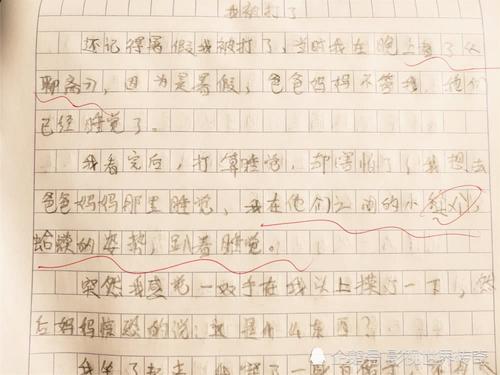 我被打了
还记得暑假我被打了，当时我在晚上看了
聊斋》，因为是暑假，爸爸妈妈不管我，他们
已经睡觉了。
我看完后，打算睡觉，却害怕了，我想去
爸爸妈妈那里睡觉，我在他们之间的小缝
蛤蟆的姿势，趴着睡觉。
突然我感觉一双手在我头上摸了一下，然
后妈妈惊讶的说，这是什么东西？
企鹅号 影视世界传奇